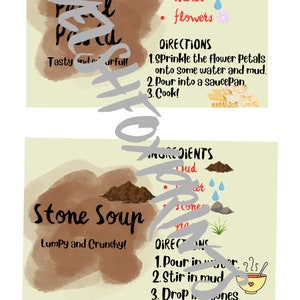 flowers
Pasta
Tasty and colourful!
DIRECTIONS
1. Sprinkle the flower Petals
onto some water and mud.
2. Pour into a saucePan.
3. Cook!
INGREDIENTS
Mud
Stone Soup
Lumpy and Crunchy!
DIRECTIONS
1. Pour in water
2. Stir in mud
3. Drop in stones